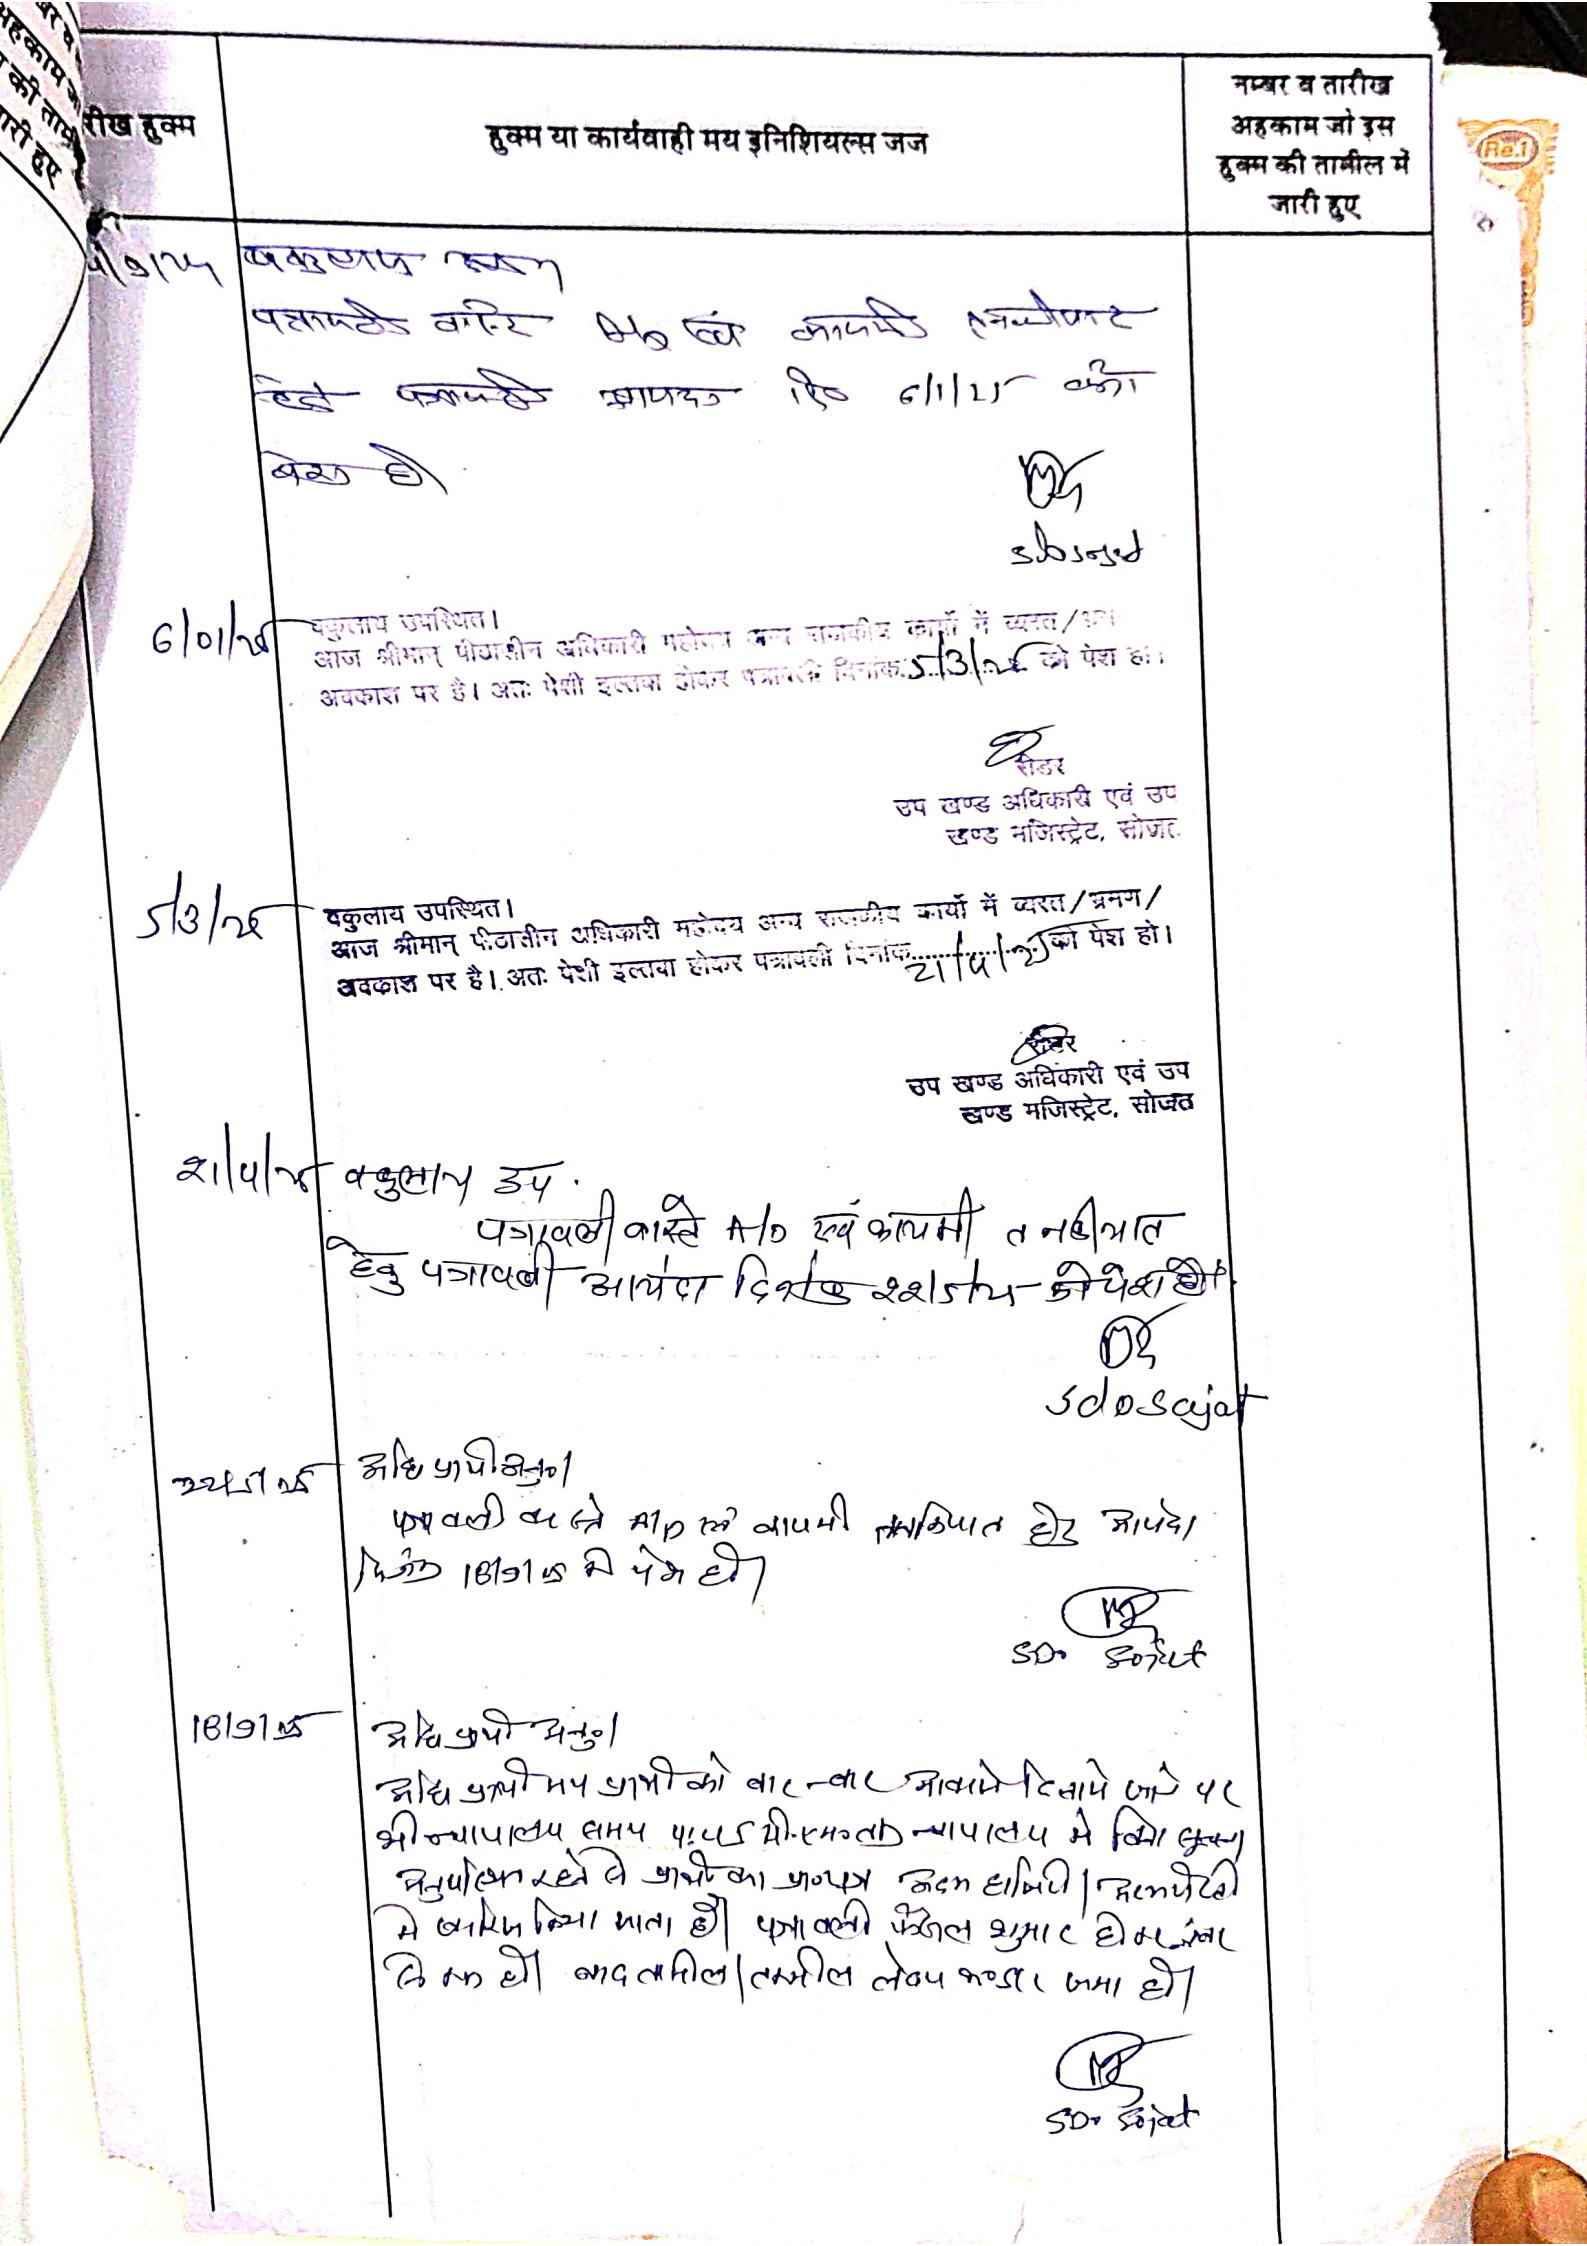 रीख हुक्म
हुक्म या कार्यवाही मय इनिशियल्स जज
नम्बर व तारीख
अहकाम जो इस
हुक्म की तामील में
जारी हुए
Re.1
पत्रावली वास्ते A/D एवं कायमी
हेतु पत्रावली आयंदा 6/1/25 को
पेश हो
6/01/25 वकुलाय उपस्थित।
आज श्रीमान् पीठासीन अधिकारी महोदय अन्य राजकीय कार्यो में व्यस्त/
अवकाश पर है। अतः पेशी इल्तवा होकर पत्रावली दिनांक 5/3/25 को पेश हो।
रीडर
उप खण्ड अधिकारी एवं उप
खण्ड मजिस्ट्रेट, सोजत
5/3/25 वकुलाय उपस्थित।
आज श्रीमान् पीठासीन अधिकारी महोदय अन्य राजकीय कार्यो में व्यस्त/भ्रमण/
अवकाश पर है। अतः पेशी इल्तवा होकर पत्रावली दिनांक 21/4/25 को पेश हो।
रीडर
उप खण्ड अधिकारी एवं उप
खण्ड मजिस्ट्रेट, सोजत
21/4/25 वकुलाय उप.
पत्रावली वास्ते A/D एवं कायमी तनकीयात
हेतु पत्रावली आयंदा दिनांक 22/5/25 को पेश हो
SDO Sojat
22/5/25 अधि प्रार्थी अनु०।
पत्रावली वास्ते A/D एवं कायमी तनकियात हेतु आयंदा
दिनांक 18/9/25 को पेश हो।
SDO Sojat
18/9/25 अधि प्रार्थी अनु०।
अधि प्रार्थी मय प्रार्थी को बार-बार आवाजे दिलाये जाने पर
भी न्यायालय समय पी.एम. तक न्यायालय मे बिना सूचना
अनुपस्थित रहने से प्रार्थी का प्रा०पत्र अदम हाजिरी/अदमपैरवी
मे खारिज किया जाता है। पत्रावली फैसल शुमार होकर नंबर
से कम हो। बाद तामील/तकमील लेख्य भण्डार जमा हो।
SDO Sojat